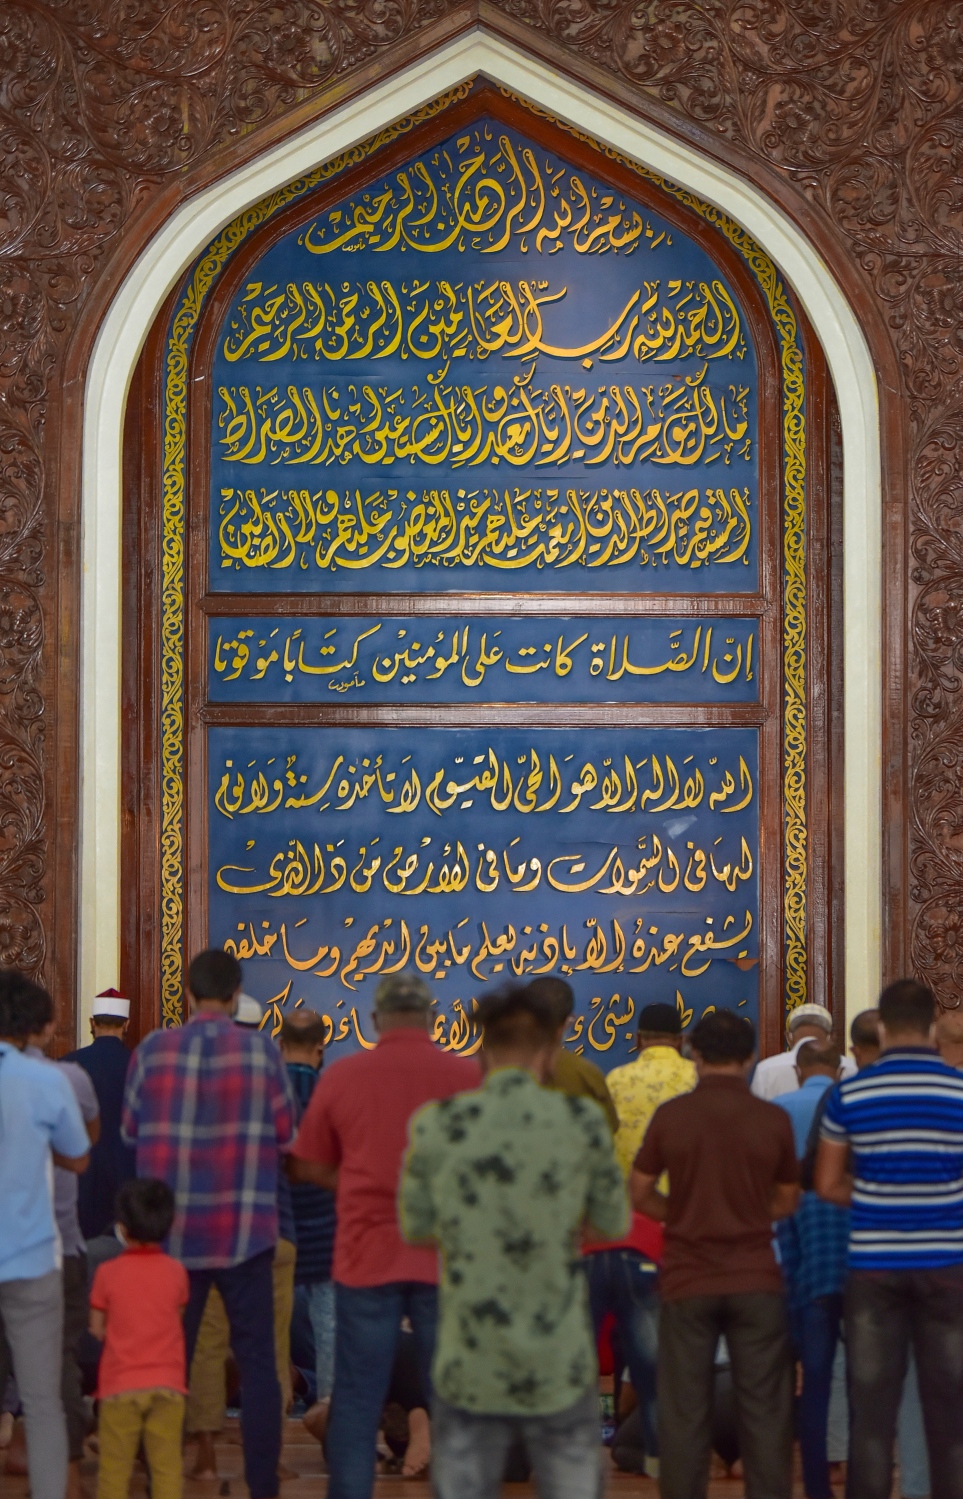 بِسْمِ اللهِ الرَّحْمٰنِ الرَّحِيْمِ
مأمون
الحَمْدُ لِلّٰهِ رَبِّ العَالَمِيْنَ الرَّحْمٰنِ الرَّحِيْمِ
مَالِكِ يَوْمِ الدِّيْنِ إِيَّاكَ نَعْبُدُ وَإِيَّاكَ نَسْتَعِيْنُ إِهْدِنَا الصِّرَاطَ
المُسْتَقِيْمَ صِرَاطَ الَّذِيْنَ أَنْعَمْتَ عَلَيْهِمْ غَيْرِ المَغْضُوْبِ عَلَيْهِمْ وَلَا الضَّالِّيْنَ
إنّ الصَّلاة كانت عَلى المؤمنيْن كتَابًا مَوْقوْتا
مأمون
اللهُ لَا إِلٰهَ إِلَّا هوَ الحَيّ القيّوْم لَا تَأخذهُ سِنَةٌ وَلَا نَوْم
لهُ مَا في السَّمٰوات ومَا في الأرْض مَنْ ذَا الَّذِيْ
يشفع عندَهُ إلّا بإذنهِ يعلم مَا بين أيْديهمْ ومَا خلفهم
بشيْءٍ إلّا بمَا شَاءَ وَسِعَ كرْ